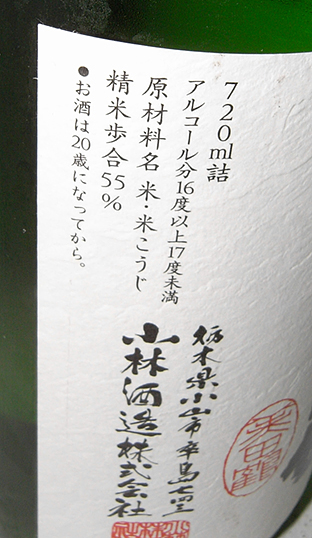 720ml詰
アルコール分16度以上17度未満
原材料名 米・米こうじ
精米歩合55%
●お酒は20歳になってから。
栃木県小山市卒島七四三
小林酒造株式会社